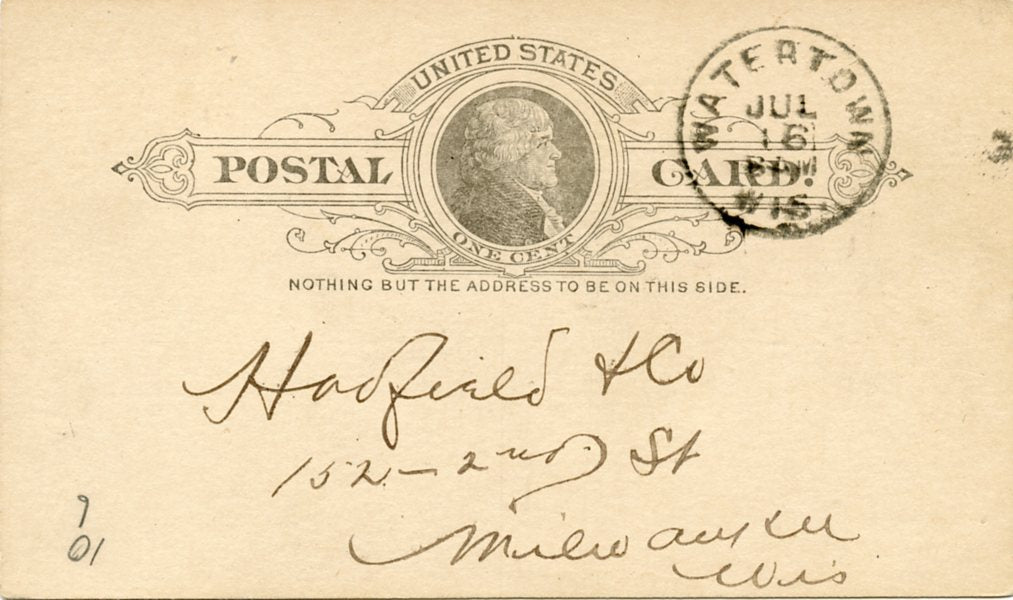 UNITED STATES
POSTAL CARD.
ONE CENT
NOTHING BUT THE ADDRESS TO BE ON THIS SIDE.
WATERTOWN
JUL
16
WIS
Hadfield & Co
152 - 2nd St
Milwaukee
Wis